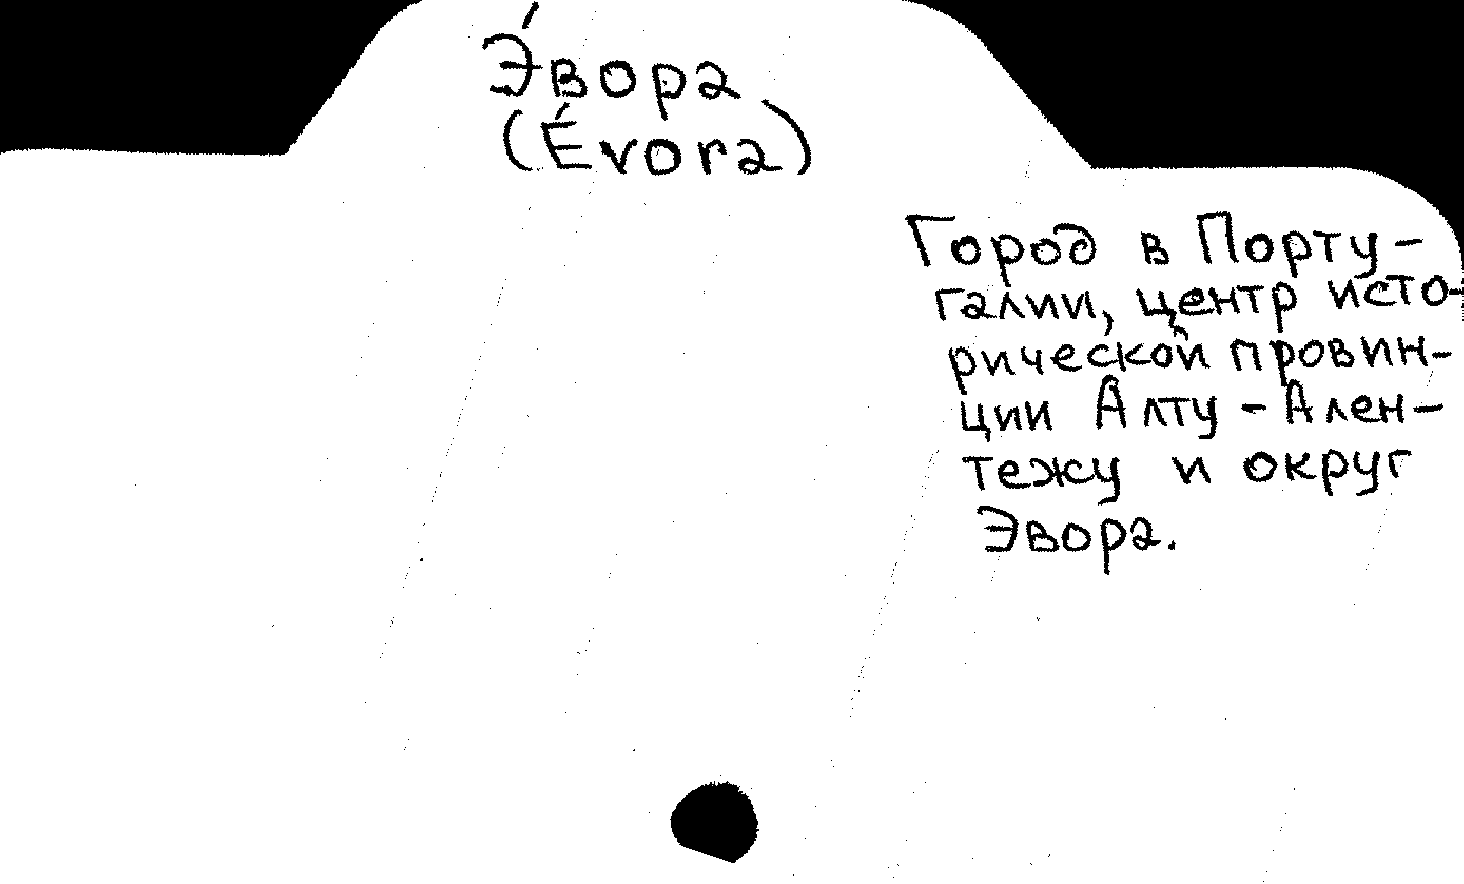 Э́вора
(Évora)
Город в Порту-
галии, центр исто-
рической провин-
ции Алту-Ален-
тежу и округ
Эвора.